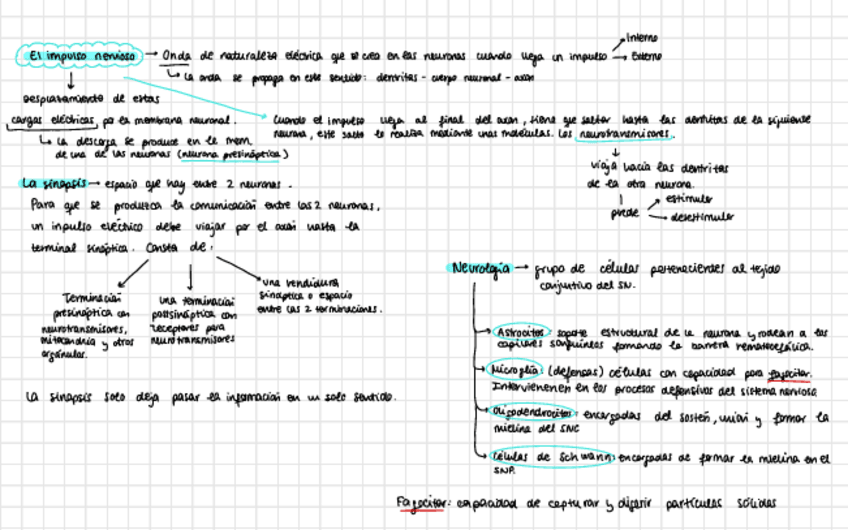 El impulso nervioso → Onda de naturaleza eléctrica que se crea en las neuronas cuando llega un impulso → Interno
→ Externo
↳ La onda se propaga en este sentido: dentritas - cuerpo neuronal - axon
Desplazamiento de estas
cargas eléctricas, por la membrana neuronal.
↳ La descarga se produce en la mem.
de una de las neuronas (neurona presináptica)
Cuando el impulso llega al final del axon, tiene que saltar hasta las dentritas de la siguiente
neurona, este salto lo realiza mediante unas moléculas. Los neurotransmisores.
↓
viaja hacia las dentritas
de la otra neurona.
puede → estimular
→ desestimular
La sinapsis → espacio que hay entre 2 neuronas.
Para que se produzca la comunicación entre las 2 neuronas,
un impulso eléctrico debe viajar por el axon hasta la
terminal sináptica. Consta de:
Terminación
presináptica con
neurotransmisores,
mitocondria y otros
orgánulos.
una terminación
postsináptica con
receptores para
neurotransmisores
una hendidura
sináptica o espacio
entre las 2 terminaciones.
La sinapsis solo deja pasar la información en un solo sentido.
Neurología → grupo de células pertenecientes al tejido
conjuntivo del SN.
Astrocitos: soporte estructural de la neurona y rodean a los
capilares sanguíneos formando la barrera hematoencefálica.
Microglía: (defensas) células con capacidad para fagocitar.
Intervienenen en los procesos defensivos del sistema nervioso
Oligodendrocitos: encargadas del sostén, unión y formar la
mielina del SNC
Células de Schwann: encargadas de formar la mielina en el
SNP.
Fagocitar: capacidad de capturar y digerir partículas sólidas